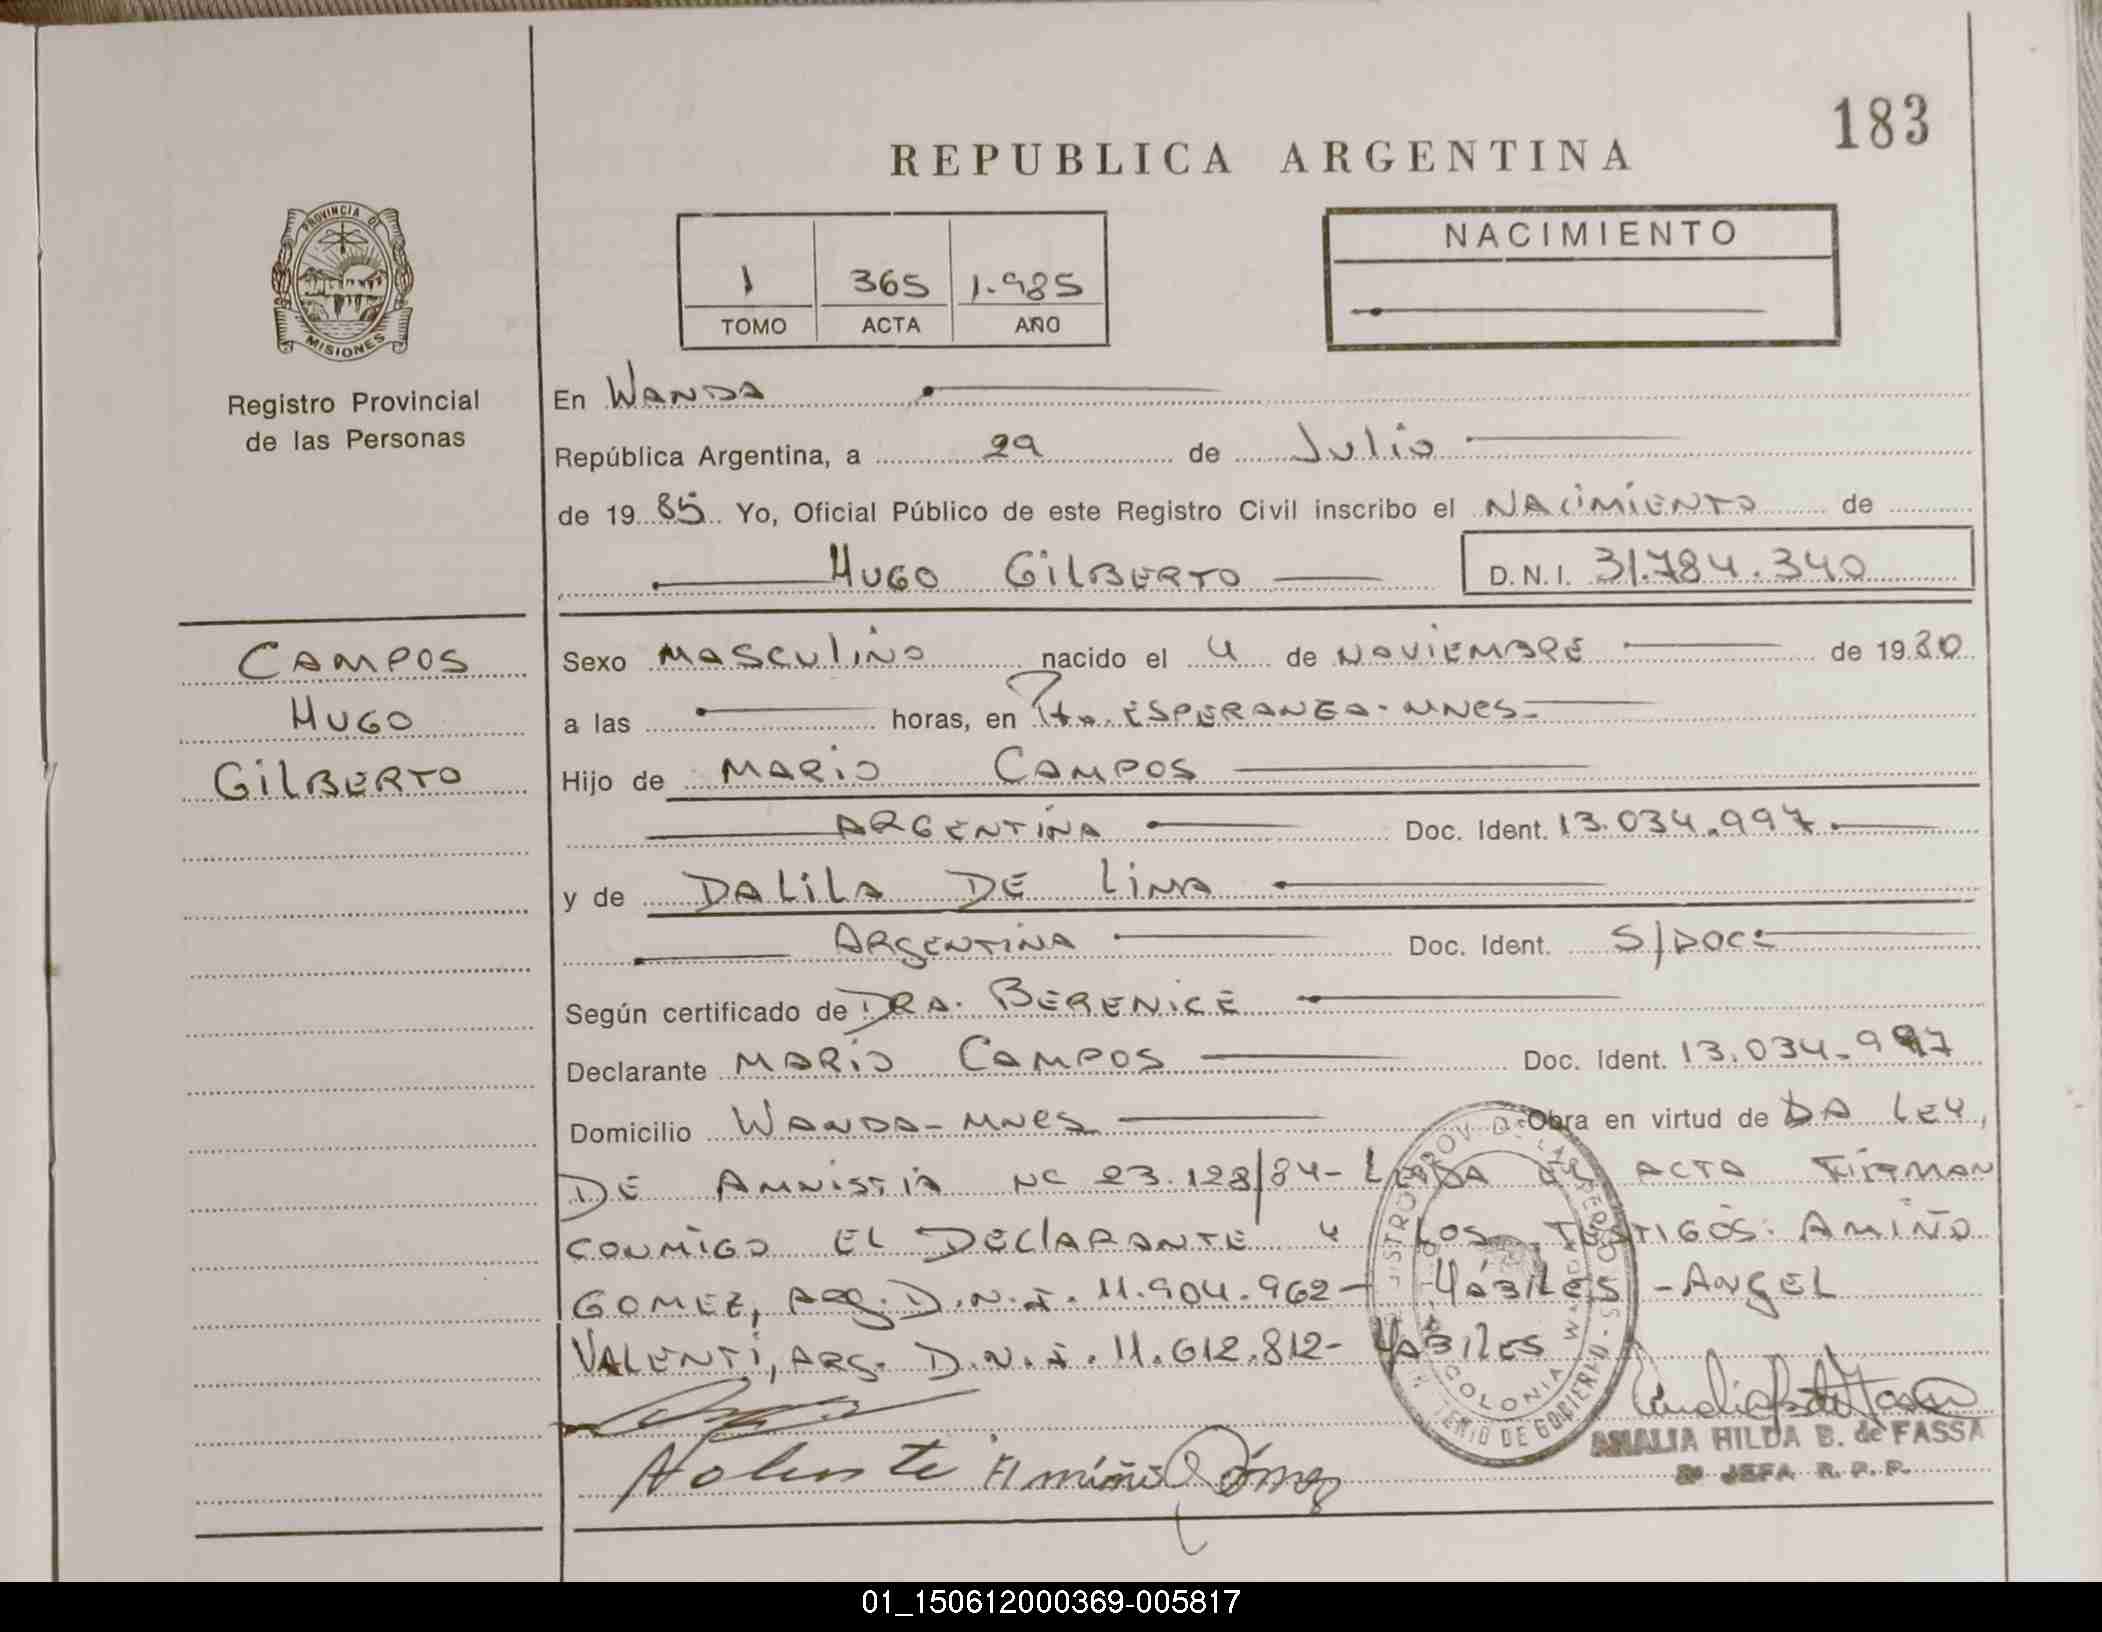 183
REPUBLICA ARGENTINA
PROVINCIA DE
MISIONES
Registro Provincial
de las Personas
1 365 1.985
TOMO ACTA AÑO
NACIMIENTO
En WANDA
República Argentina, a 29 de Julio
de 1985 Yo, Oficial Público de este Registro Civil inscribo el NACIMIENTO de
HUGO GILBERTO D.N.I. 31.784.340
CAMPOS
HUGO
GILBERTO
Sexo MASCULINO nacido el 4 de NOVIEMBRE de 1980
a las horas, en Pto. ESPERANZA-MNES-
Hijo de MARIO CAMPOS
ARGENTINA Doc. Ident. 13.034.997
y de DALILA DE LIMA
ARGENTINA Doc. Ident. S/DOC:
Según certificado de DRA. BERENICE
Declarante MARIO CAMPOS Doc. Ident. 13.034.997
Domicilio WANDA-MNES Obra en virtud de DA LEY,
DE AMNISTIA NC 23.128/84- LEIDA EL ACTA FIRMAN
CONMIGO EL DECLARANTE Y LOS TESTIGOS: AMIÑO
GOMEZ, ARG. D.N.I. 11.904.962- HÁBILES -ANGEL
VALENTI, ARG. D.N.I. 11.612.812- HABILES
COLONIA WANDA
DE GOBIERNO
AMALIA HILDA B. de FASSA
2ª JEFA R.P.P.
01_150612000369-005817